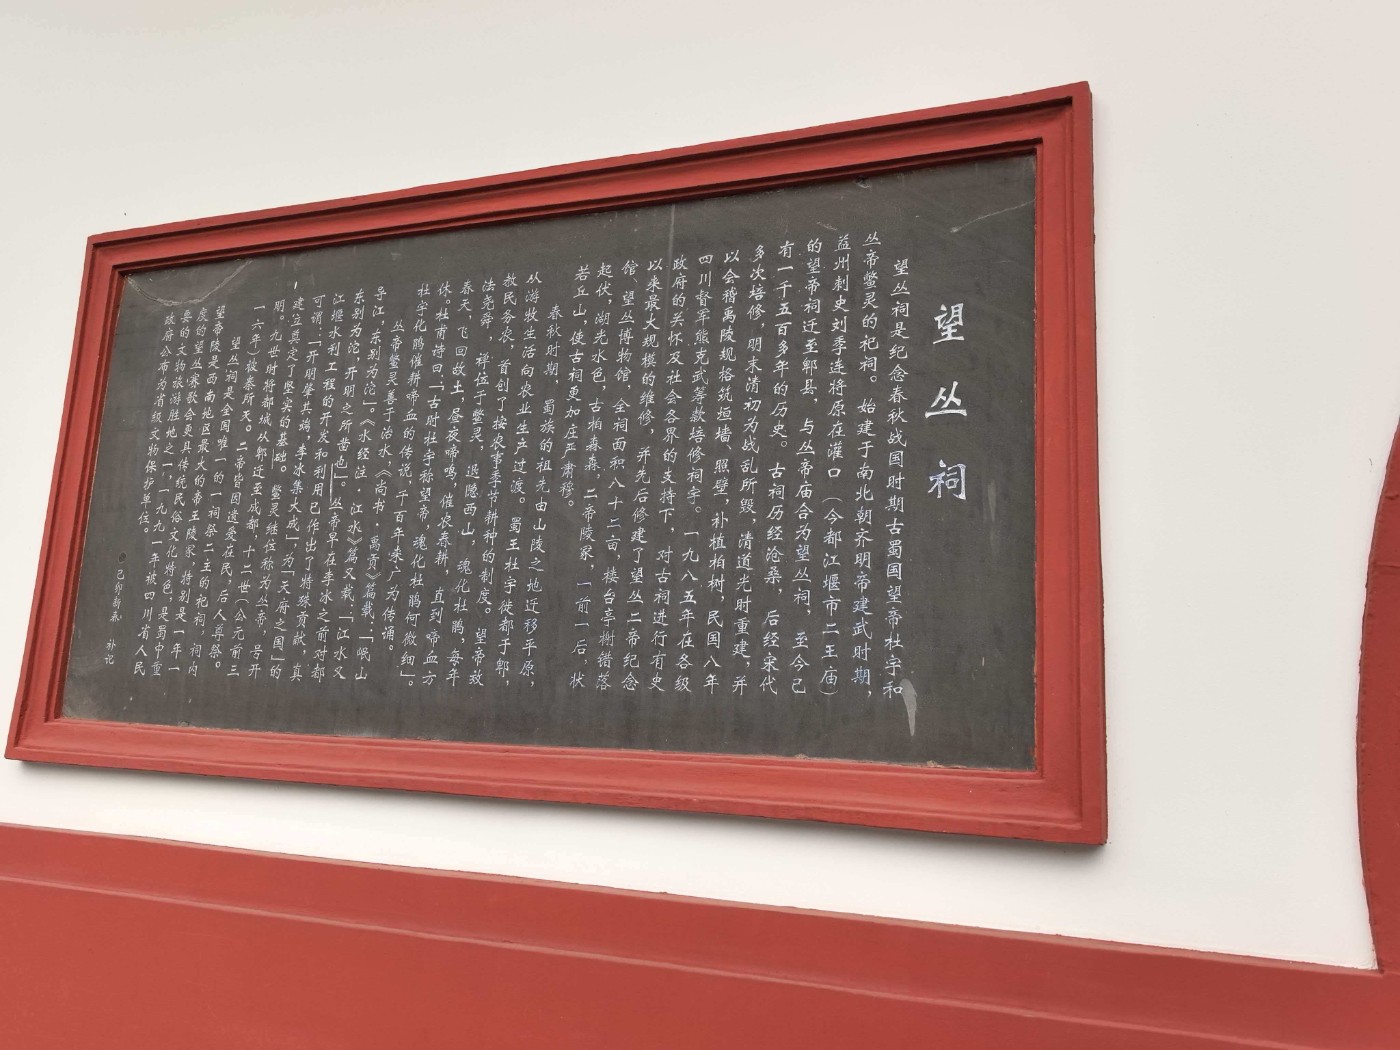 望丛祠
望丛祠是纪念春秋战国时期古蜀国望帝杜宇和
丛帝鳖灵的祀祠。始建于南北朝齐明帝建武时期，
益州刺史刘季连将原在灌口（今都江堰市二王庙）
的望帝祠迁至郫县，与丛帝庙合为望丛祠，至今已
有一千五百多年的历史。古祠历经沧桑，后经宋代
多次培修，明末清初为战乱所毁，清道光时重建，并
以会稽禹陵规格筑垣墙、照壁，补植柏树，民国八年
四川督军熊克武筹款培修祠宇。一九八五年在各级
政府的关怀及社会各界的支持下，对古祠进行有史
以来最大规模的维修，并先后修建了望丛二帝纪念
馆、望丛博物馆，全祠面积八十二亩，楼台亭榭错落
起伏，湖光水色，古柏森森，二帝陵冢，一前一后，状
若丘山，使古祠更加庄严肃穆。
春秋时期，蜀族的祖先由山陵之地迁移平原，
从游牧生活向农业生产过渡。蜀王杜宇徙都于郫，
教民务农，首创了按农事季节耕种的制度。望帝效
法尧舜，禅位于鳖灵，退隐西山，魂化杜鹃，每年
春天，飞回故土，昼夜啼鸣，催农春耕，直到啼血方
休。杜甫诗曰：“古时杜宇称望帝，魂化杜鹃何微细”。
杜宇化鹃催耕啼血的传说，千百年来广为传诵。
丛帝鳖灵善于治水，《尚书·禹贡》篇载：「岷山
导江，东别为沱」。《水经注·江水》篇又载：「江水又
东别为沱，开明之所凿也」。丛帝早在李冰之前对都
江堰水利工程的开发和利用已作出了特殊贡献，真
可谓：「开明肇其端，李冰集大成」，为「天府之国」的
建立奠定了坚实的基础。鳖灵继位称为丛帝，号开
明。九世时将都城从郫迁至成都，十二世（公元前三
一六年）被秦所灭。二帝皆因遗爱在民，后人尊祭。
望丛祠是全国唯一的一祠祭二主的祀祠，祠内
望帝陵是西南地区最大的帝王陵冢，特别是一年一
度的望丛赛歌会更具传统民俗文化特色，是蜀中重
要的文物旅游胜地之一，一九九一年被四川省人民
政府公布为省级文物保护单位。
己卯新春 补记